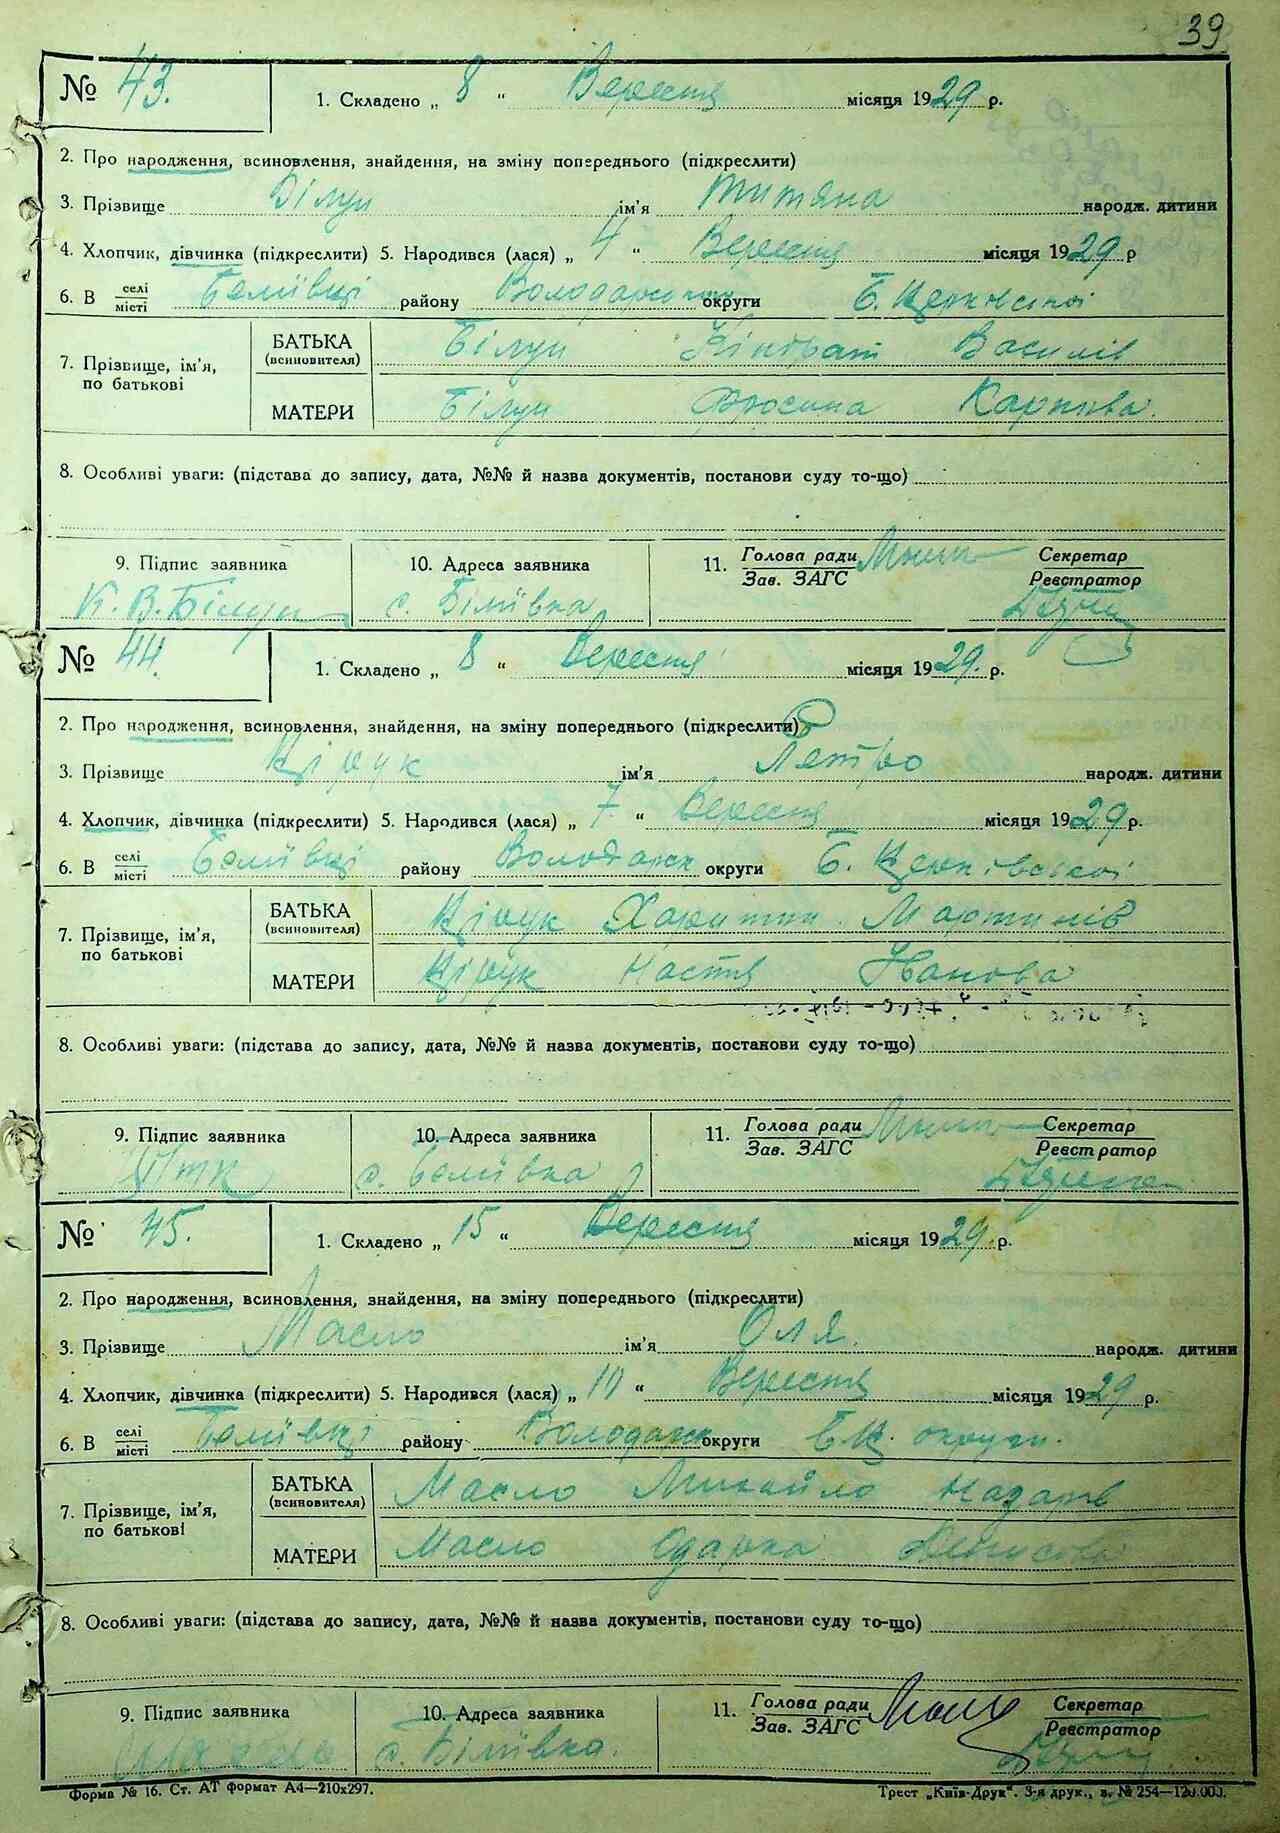 39
№ 43. 1. Складено „ 8 “ Вересня місяця 1929 р.
2. Про народження, всиновлення, знайдення, на зміну попереднього (підкреслити)
3. Прізвище Білун ім'я Титяна народж. дитини
4. Хлопчик, дівчинка (підкреслити) 5. Народився (лася) „ 4 “ Вересня місяця 1929 р
6. В селі/місті Біліївці району округи Б. Церковської
7. Прізвище, ім'я, по батькові
БАТЬКА (всиновителя) Білун Кіндрат Василів
МАТЕРИ Білун Карпова.
8. Особливі уваги: (підстава до запису, дата, №№ й назва документів, постанови суду то-що)
9. Підпис заявника 10. Адреса заявника 11. Голова ради Секретар
Зав. ЗАГС Реєстратор
К. В. Білун с. Біліївка
№ 44. 1. Складено „ 8 “ Вересня місяця 1929. р.
2. Про народження, всиновлення, знайдення, на зміну попереднього (підкреслити)
3. Прізвище Ціпук ім'я Петро народж. дитини
4. Хлопчик, дівчинка (підкреслити) 5. Народився (лася) „ 7 “ Вересня місяця 1929 р.
6. В селі/місті Біліївці району Володарск округи Б. Церківської
7. Прізвище, ім'я, по батькові
БАТЬКА (всиновителя) Ціпук Харитин Мартинів
МАТЕРИ Ціпук Настя Иванова
8. Особливі уваги: (підстава до запису, дата, №№ й назва документів, постанови суду то-що)
9. Підпис заявника 10. Адреса заявника 11. Голова ради Секретар
Зав. ЗАГС Реєстратор
с. Біліївка
№ 45. 1. Складено „ 15 “ Вересня місяця 1929. р.
2. Про народження, всиновлення, знайдення, на зміну попереднього (підкреслити)
3. Прізвище Масло ім'я Оля. народж. дитини
4. Хлопчик, дівчинка (підкреслити) 5. Народився (лася) „ 10 “ Вересня місяця 1929 р.
6. В селі/місті Біліївці району Володарск округи Б.Ц. округи.
7. Прізвище, ім'я, по батькові
БАТЬКА (всиновителя) Масло Михайло Назарів
МАТЕРИ Масло Одарка Денисова
8. Особливі уваги: (підстава до запису, дата, №№ й назва документів, постанови суду то-що)
9. Підпис заявника 10. Адреса заявника 11. Голова ради Секретар
Зав. ЗАГС Реєстратор
с. Біліївка.
Форма № 16. Ст. АТ формат А4—210x297. Трест „Київ-Друк“. 3-я друк., з. № 254—120.000.